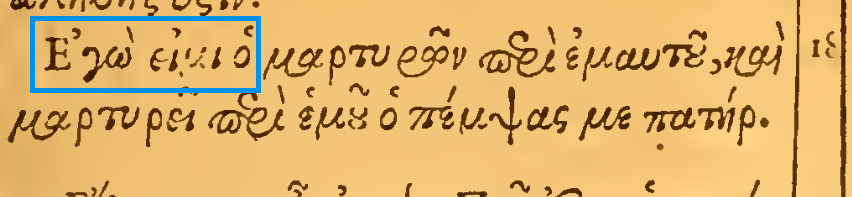 Ἐγὼ εἰμι ὁ μαρτυρῶν περὶ ἐμαυτοῦ, καὶ
μαρτυρεῖ περὶ ἐμοῦ ὁ πέμψας με πατήρ.